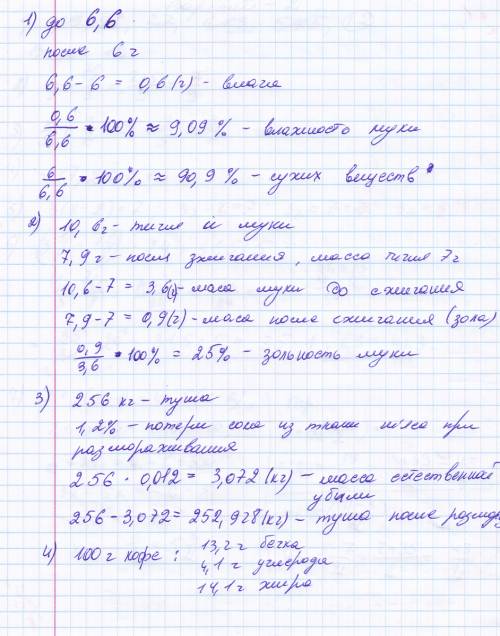 1) до 6,6.
после 6 г
6,6 - 6 = 0,6 (г) - влага
0,6/6,6 • 100% ≈ 9,09 % - влажность муки
6/6,6 • 100% ≈ 90,9 % - сухих веществ
2) 10,6г - тигля и муки
7,9 г - после зжигания, масса тигля 7г
10,6 - 7 = 3,6(г) - маса муки до сжигания
7,9 - 7 = 0,9(г) - маса после сжигания (зола)
0,9/3,6 • 100% = 25% - зольность муки
3) 256 кг - туша
1,2% - потери сока из ткани мяса при
размораживания
256 • 0,012 = 3,072 (кг) - масса естественной
убыли
256 - 3,072 = 252,928 (кг) - туша после
4) 100 г кофе : 13,2 г белка
4,1 г углерода
14,1 г жира